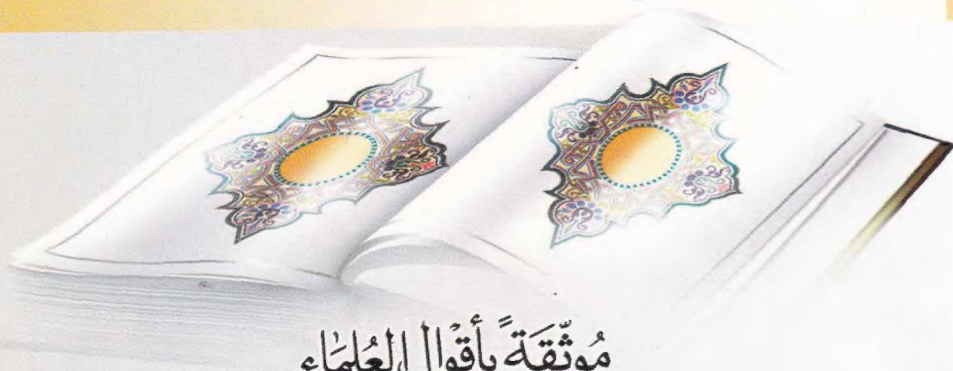 مُوثّقَةً بِأَقْوالِ العُلمَاءِ